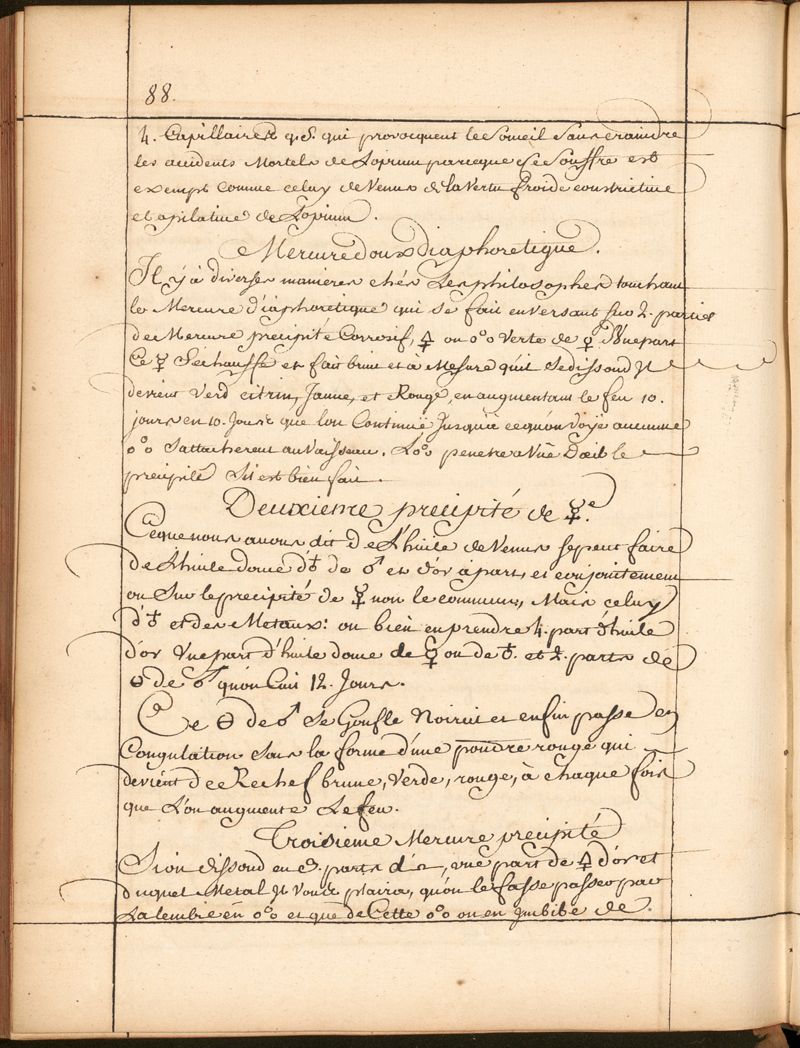 88.
4. Capillaires q.S. qui provocquent le Someil sans craindre
les accidents Mortels de Lopium parceque ce Souffre est
exempt comme celuy de Venus de la Vertu froide constrictive
et opilative de Lopium.
Mercure doux diaphoretique.
Il y à diverses manieres chés Les philosophes touchant
le Mercure d'iaphoretique qui se fait en versant sur 2. parties
de Mercure precipité Corrosif, 🜍 ou o°o Verte de ♀. Vne part
Ce ☿ S'échauffe et fait bruit et à Mesure qu'il se dissoud Il
devient Verd citrin, Jaune, et Rouge, en augmentant le feu 10.
jours en 10. Jours que lon Continuë Jusqu'à cequ'on Voye aucune
o°o Sattacherent au Vaisseau. Lo°o penetre a Vuë D'oeil le
precipité S'il est bien fait.
Deuxieme precipité de ☿.e
Ceque nous avons dit de L'huile de Venus se peut faire
de L'huile dome d'♄ de ♂ et d'or à part, et conjointement
ou Sur le precipité de ☿ non le commun, Mais celuy
d'♄ et des Metaux: ou bien en prendre 4. part d'huile
d'or Vne part d'huile dome de ☿ ou de ♄. et 2. parts de
🜔 de ♂ qu'on Cuit 12. Jours.
Ce 🜔 de ♂ Se Gonfle Noircit et enfin passe en
Congulation sous la forme d'une poudre rouge qui
devient de Rechef brune, Verde, rouge, à chaque fois
que L'on augmente Le feu.
Troisieme Mercure precipité
Si on dissoud en 3. parts d'or, vne part de 🜍 d'or et
duquel Metal Il Vous plaira, qu'on le fasse passer par
La lembic en o°o et que de Cette o°o on en Imbibe de.